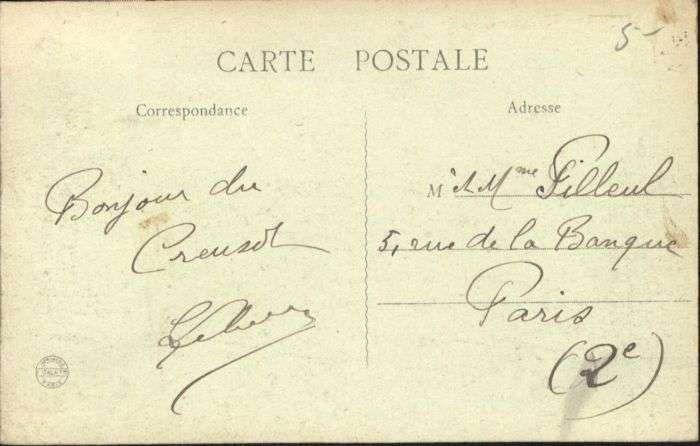 5-
CARTE POSTALE
Correspondance
Adresse
Bonjour du
Creusot
M et Mme Filleul
5, rue de la Banque
Paris
(2e)